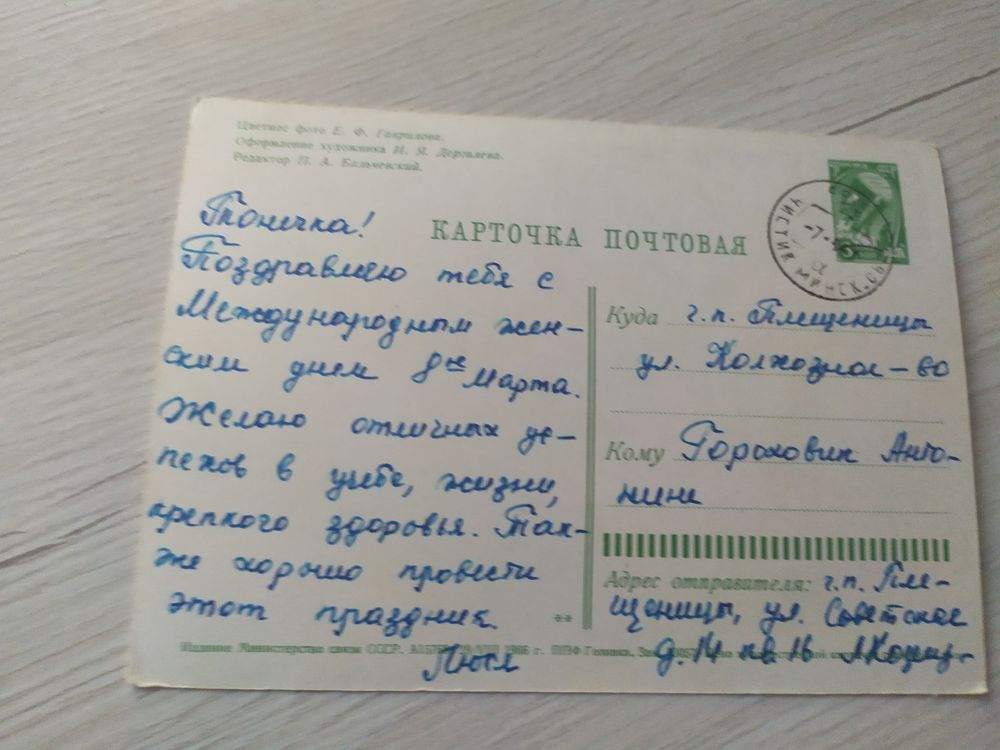 Цветное фото Е. Ф. Гаврилова.
Оформление художника Н. Я. Дергилева.
Редактор П. А. Бальчевский.
КАРТОЧКА ПОЧТОВАЯ
Тонечка!
Поздравляю тебя с
Международным жен-
ским днем 8ое Марта.
Желаю отличных ус-
пехов в учебе, жизни,
крепкого здоровья. Так-
же хорошо провести
этот праздник.
Люся
Куда г.п. Плещеницы
ул. Колхозная - 60
Кому Горохович Анто-
нине
Адрес отправителя: г.п. Пле-
щеницы, ул. Советская
д. 14 кв 16
Издание Министерства связи СССР.